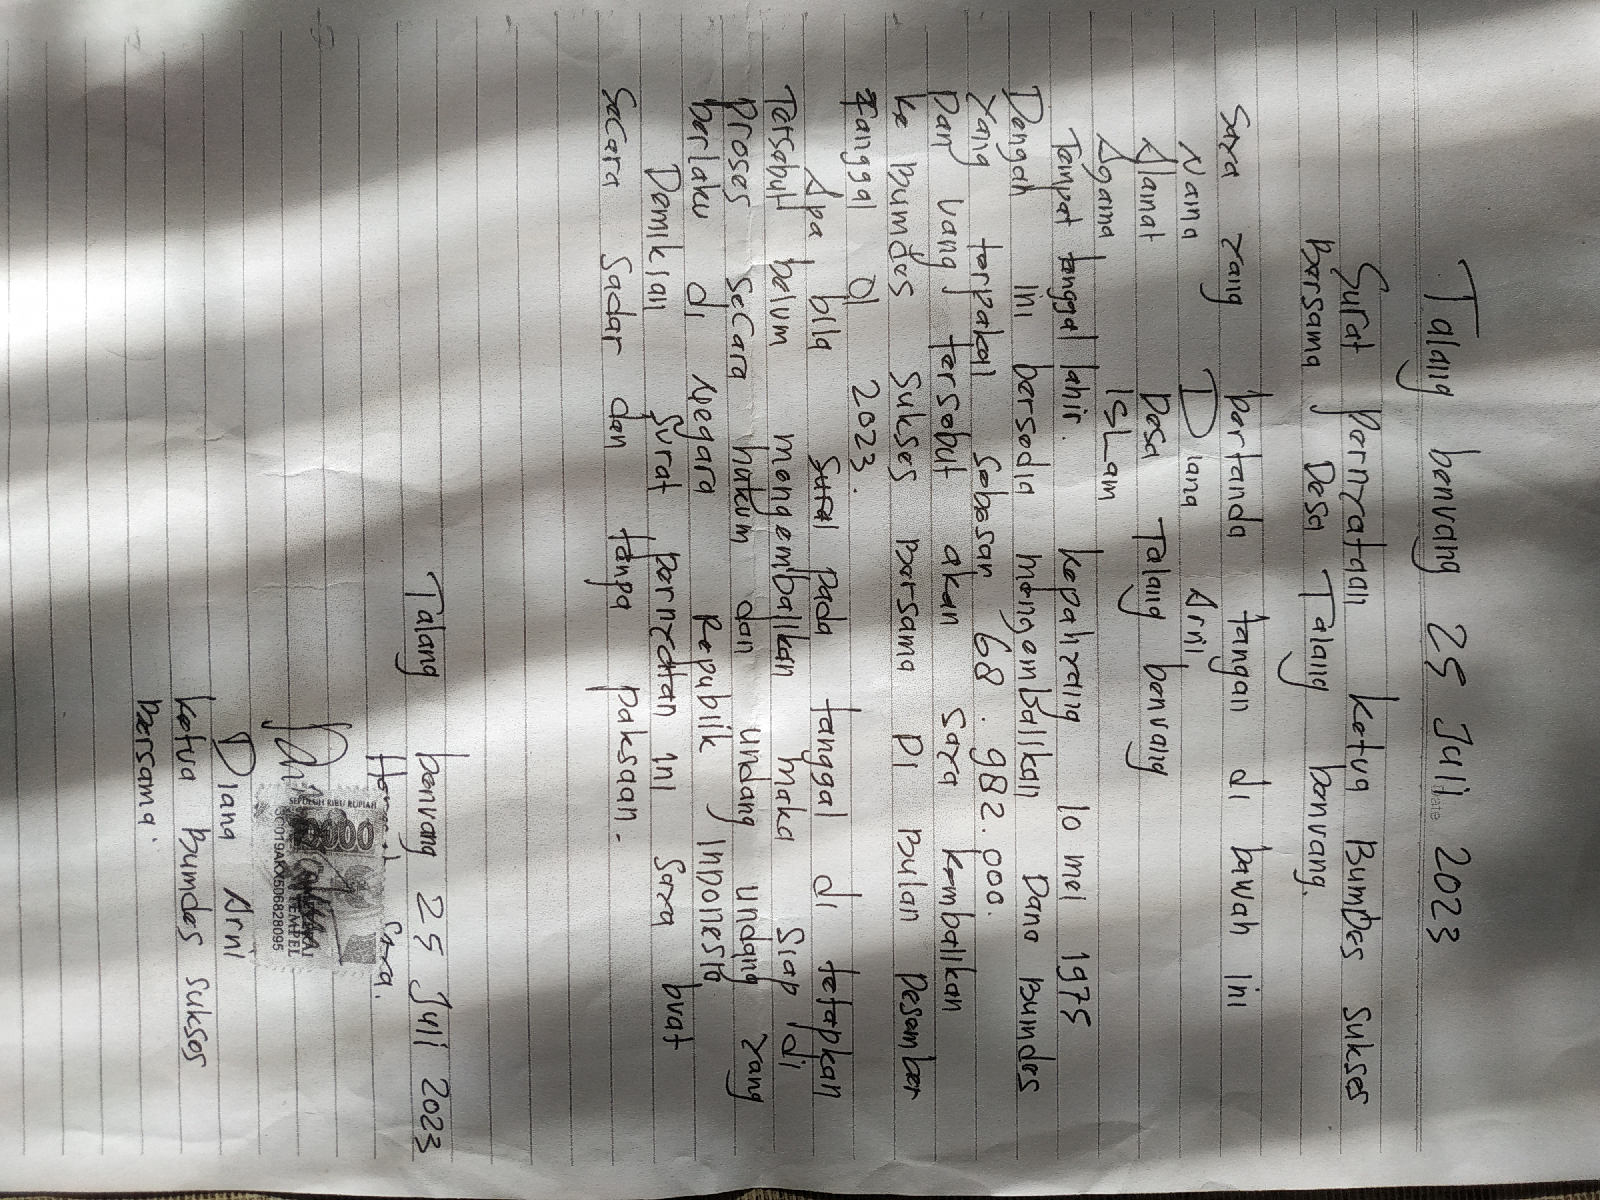 Talang benuang 25 Juli 2023
Surat pernyataan ketua BumDes sukses
bersama Desa Talang benuang.
Saya yang bertanda tangan di bawah ini
Nama Diana Arni
Alamat Desa Talang benuang
Agama ISLam
Tempat tanggal lahir. kepahyang 10 mei 1975
Dengan ini bersedia mengembalikan Dana Bumdes
Yang terpakai sebesar 68.982.000.
Dan uang tersebut akan saya kembalikan
ke Bumdes Sukses Bersama Di Bulan Desember
tanggal 01 2023.
Apa bila pada tanggal di tetapkan
Tersebut belum mengembalikan maka Siap di
Proses secara hukum dan undang undang yang
berlaku di Negara Republik Indonesia
Demikian Surat pernyatan ini Saya buat
Secara Sadar dan tanpa paksaan.
Talang benuang 25 Juli 2023
Saya.
SEPULUH RIBU RUPIAH
TEMPEL
Diana Arni
ketua Bumdes sukses
Bersama.